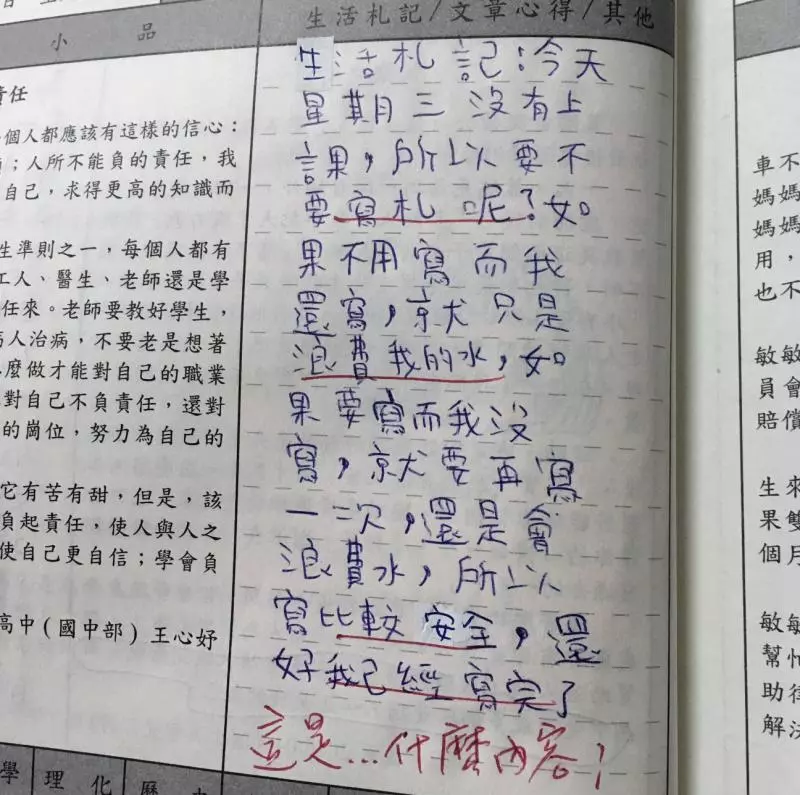 小品
生活札記/文章心得/其他
責任
個人都應該有這樣的信心：
；人所不能負的責任，我
自己，求得更高的知識而
生準則之一，每個人都有
工人、醫生、老師還是學
任來。老師要教好學生，
病人治病，不要老是想著
麼做才能對自己的職業
對自己不負責任，還對
的崗位，努力為自己的
它有苦有甜，但是，該
負起責任，使人與人之
使自己更自信；學會負
高中(國中部)王心妤
生活札記：今天
星期三沒有上
課，所以要不
要寫札呢？如
果不用寫而我
還寫，京犬只是
浪費我的水，如
果要寫而我沒
寫，京犬要再寫
一次，還是會
浪費水，所以
寫比較安全，還
好我己經寫完了
這是...什麼內容！
學 理化 歷
車不
媽媽
媽媽
用，
也不
敏敏
員會
賠償
生來
果雙
個月
敏敏
幫忙
助律
解決